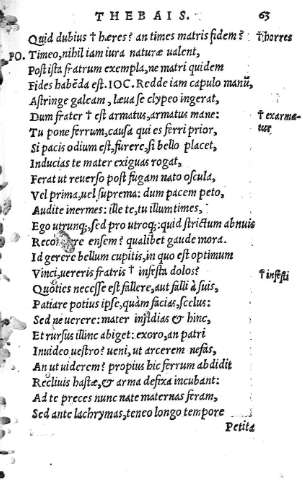 THEBAIS. 63
Quid dubius † hæres? an times matris fidem? † horres
PO. Timeo, nihil iam iura naturæ ualent,
Post ista fratrum exempla, ne matri quidem
Fides habẽda est. IOC. Redde iam capulo manũ,
Astringe galeam, læua se clypeo ingerat,
Dum frater † est armatus, armatus mane: † exarma=
Tu pone ferrum, causa qui es ferri prior, tur
Si pacis odium est, furere, si bello placet,
Inducias te mater exiguas rogat,
Ferat ut reuerso post fugam nato oscula,
Vel prima, uel suprema: dum pacem peto,
Audite inermes: ille te, tu illum times,
Ego utrunq;, sed pro utroq;: quid strictum abnuis
ensem? qualibet gaude mora.
Id gerere bellum cupitis, in quo est optimum
Vinci, uereris fratris † infesta dolos? † infesti
Quoties necesse est fallere, aut falli à suis,
Patiare potius ipse, quàm facias, scelus:
Sed ne uerere: mater insidias & hinc,
Et rursus illinc abiget: exoro, an patri
Inuideo uestro? ueni, ut arcerem nefas,
An ut uiderem? propius hic ferrum abdidit
Recliuis hastæ, & arma defixa incubant:
Ad te preces nunc nate maternas feram,
Sed ante lachrymas, teneo longo tempore
Petita